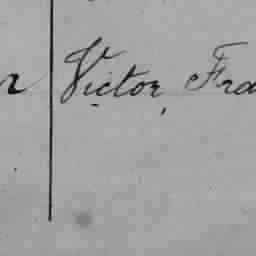 Victor, Fra